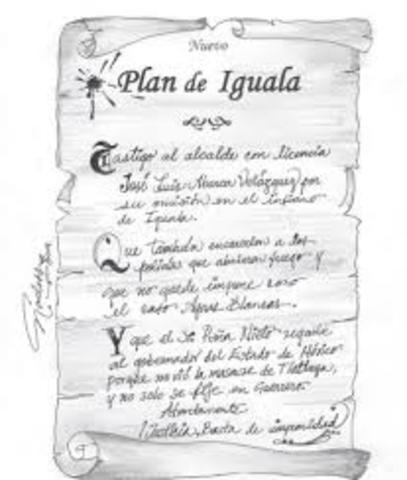 Nuevo
Plan de Iguala
Castigo al alcalde con licencia
José Luis Abarca Velázquez por
su omisión en el
de Iguala.
Que también encarcelen a los
policías que abrieron fuego y
que no quede impune como
el caso Aguas Blancas.
Y que el Sr. Peña Nieto regañe
al gobernador del Estado de México
porque no vió la masacre de Tlatlaya,
y no solo se fije en Guerrero
Atentamente
Basta de impunidad